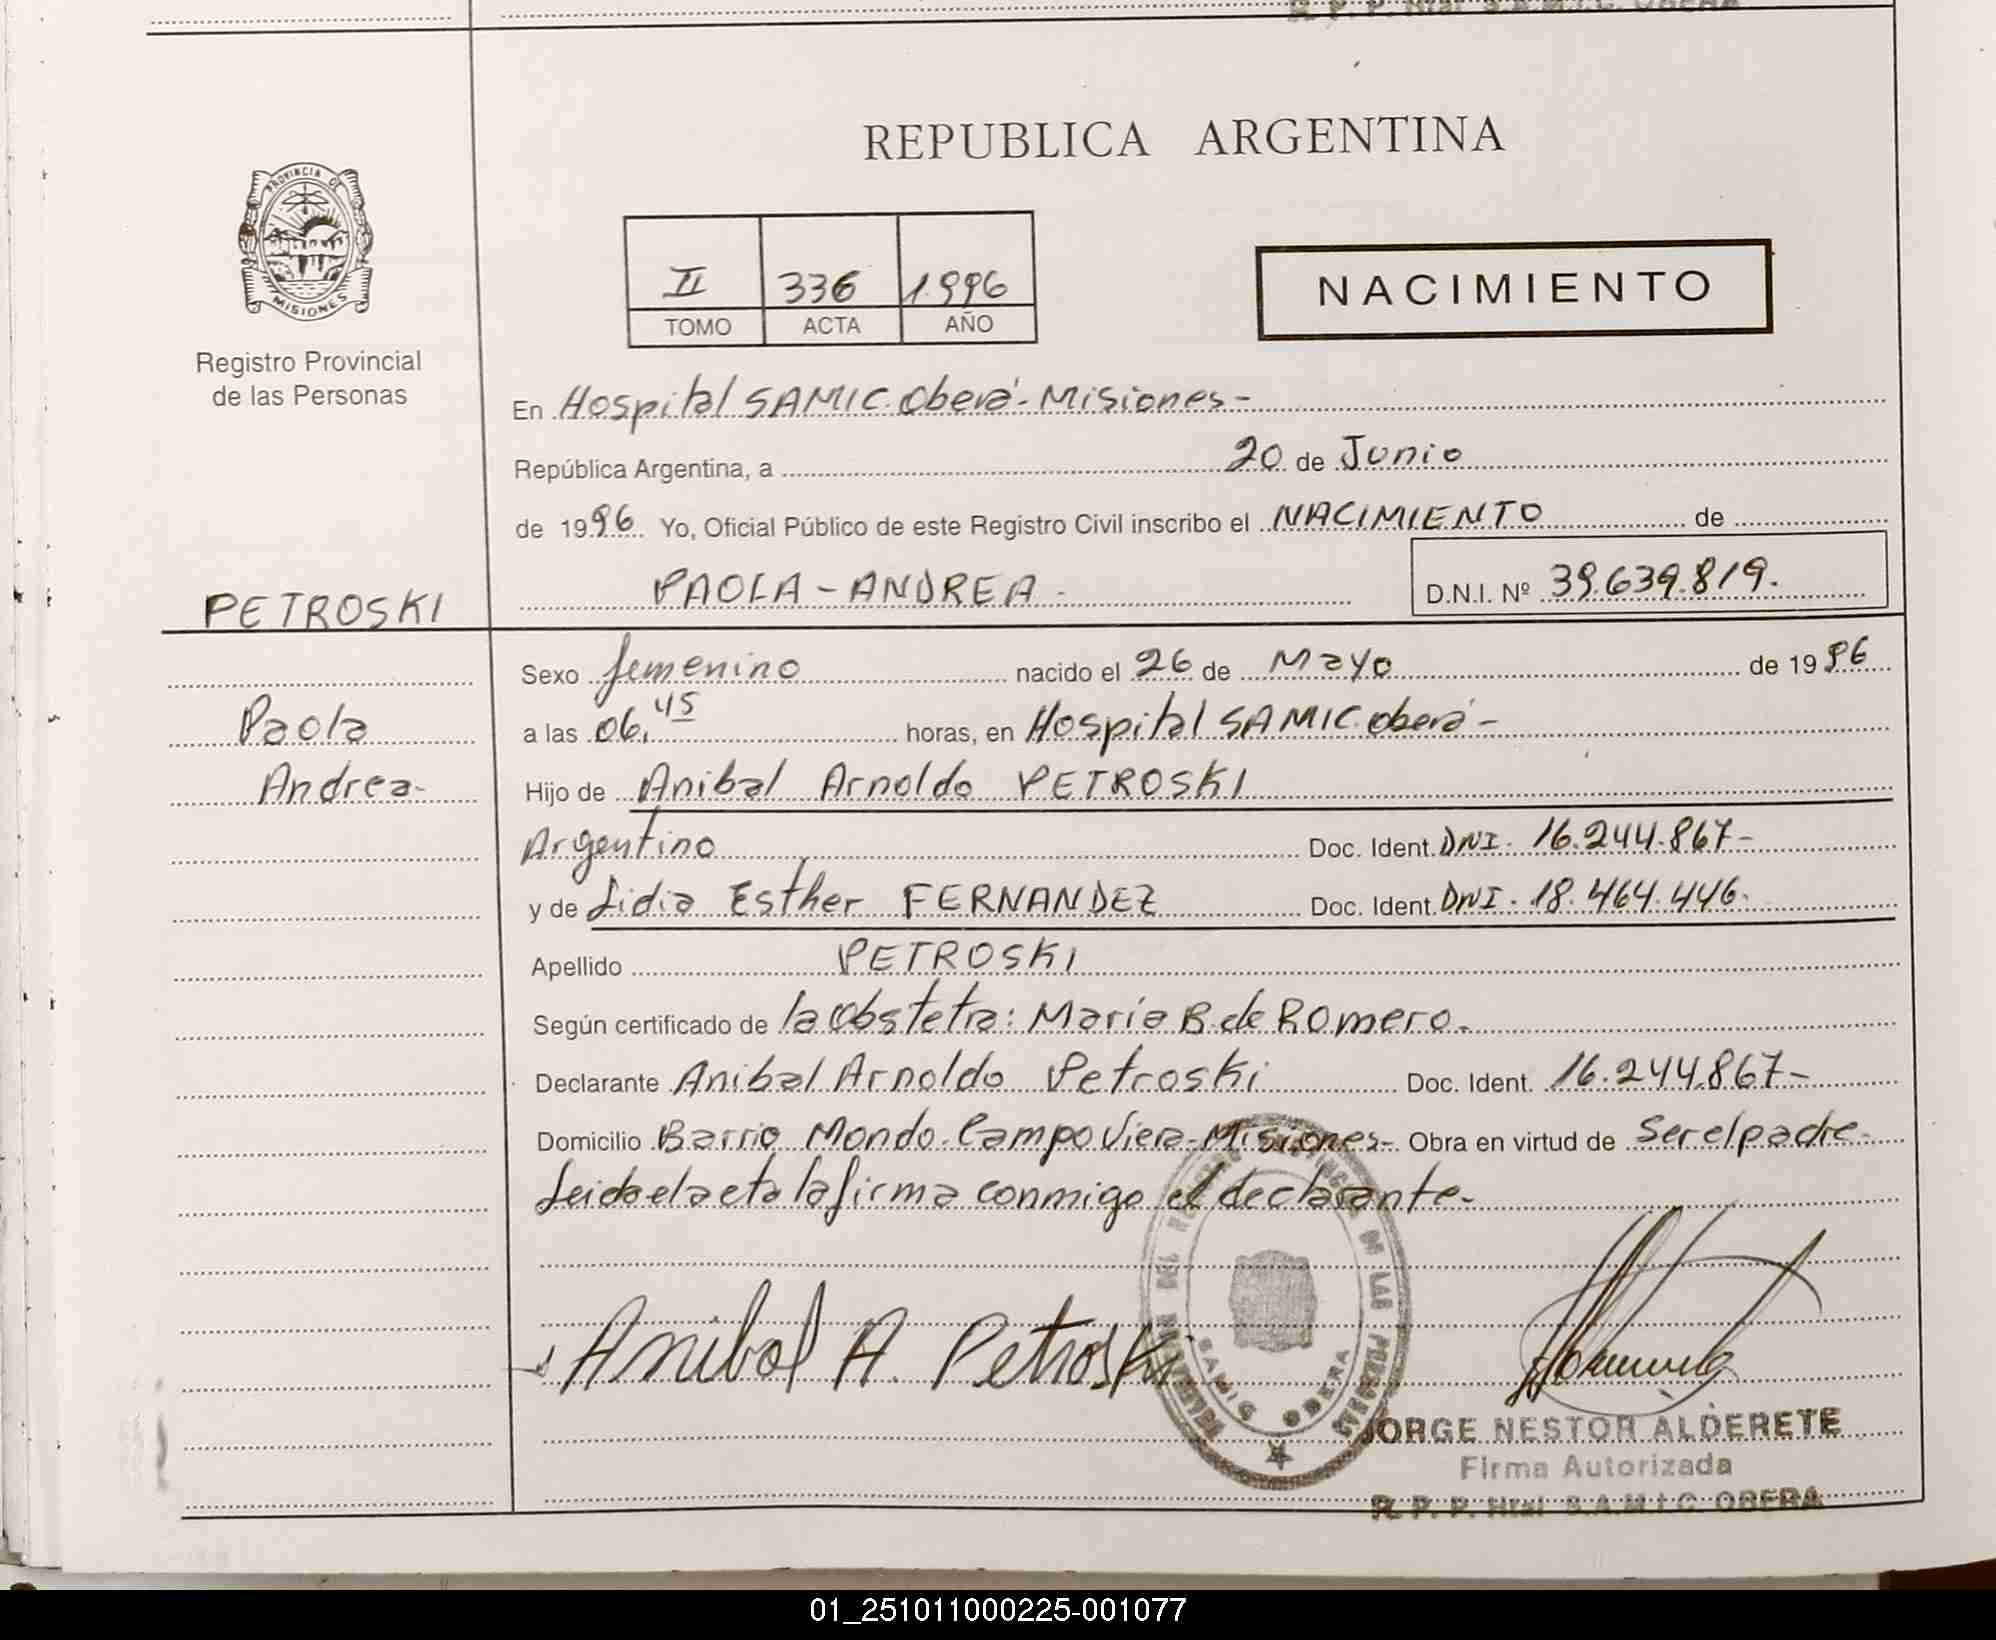 R. P. P. Htal S.A.M.I.C. OBERA
REPUBLICA ARGENTINA
PROVINCIA DE
MISIONES
II 336 1.996
TOMO ACTA AÑO
NACIMIENTO
Registro Provincial
de las Personas
En Hospital SAMIC. Oberá - Misiones -
República Argentina, a 20 de Junio
de 1996 Yo, Oficial Público de este Registro Civil inscribo el NACIMIENTO de
PETROSKI PAOLA - ANDREA - D.N.I. Nº 39.639.819.
Sexo femenino nacido el 26 de Mayo de 1996
Paola a las 06,45 horas, en Hospital SAMIC Oberá -
Andrea- Hijo de Anibal Arnoldo PETROSKI
Argentino Doc. Ident. DNI. 16.244.867-
y de Lidia Esther FERNANDEZ Doc. Ident. DNI. 18.464.446-
Apellido PETROSKI
Según certificado de la Obstetra: Maria B. de Romero.
Declarante Anibal Arnoldo Petroski Doc. Ident. 16.244.867-
Domicilio Barrio Mondo. Campo Viera - Misiones - Obra en virtud de ser el padre-
Leido el acta la firma conmigo el declarante-
Anibal A. Petroski
DE LAS PERSONAS
SAMIC OBERA
JORGE NESTOR ALDERETE
Firma Autorizada
R. P. P. Htal S.A.M.I.C. OBERA
01_251011000225-001077